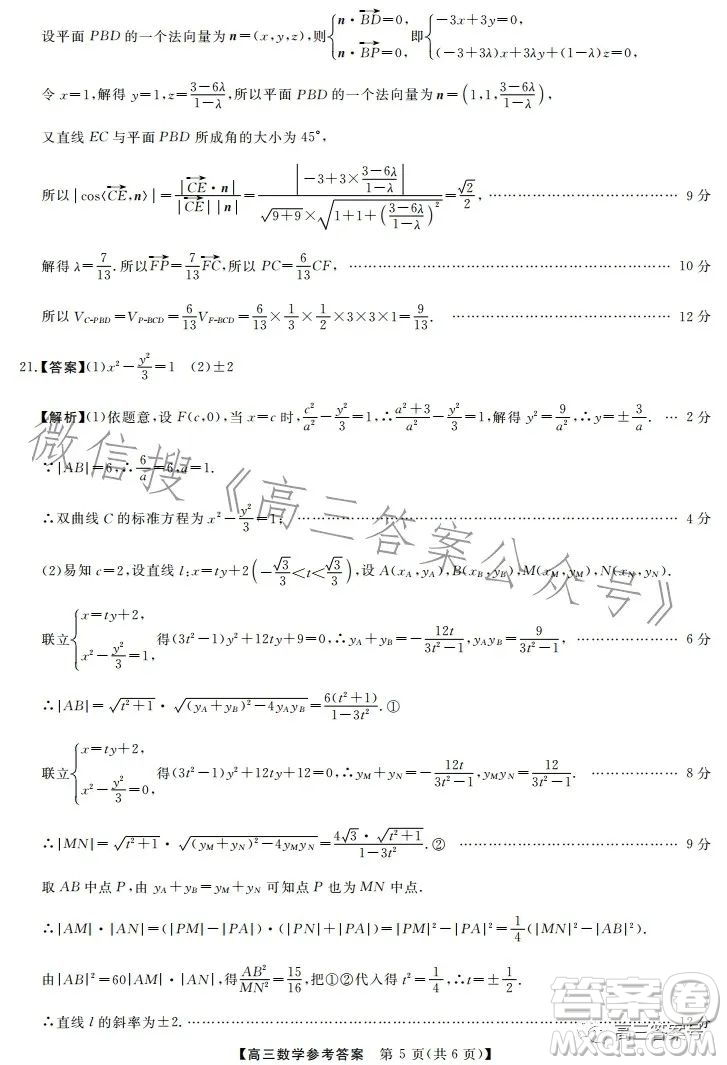 设平面 PBD 的一个法向量为 n=(x,y,z),则{n·BD→=0, n·BP→=0, 即{-3x+3y=0, (-3+3λ)x+3λy+(1-λ)z=0,
令 x=1,解得 y=1,z=(3-6λ)/(1-λ),所以平面 PBD 的一个法向量为 n=(1,1,(3-6λ)/(1-λ)),
又直线 EC 与平面 PBD 所成角的大小为 45°,
所以|cos⟨CE→,n⟩|=|CE→·n|/(|CE→||n|)=|-3+3×(3-6λ)/(1-λ)|/(√(9+9)×√(1+1+((3-6λ)/(1-λ))²))=√2/2, …… 9 分
解得 λ=7/13.所以FP→=7/13 FC→,所以 PC=6/13 CF, …… 10 分
所以 V_{C-PBD}=V_{P-BCD}=6/13 V_{F-BCD}=6/13×1/3×1/2×3×3×1=9/13. …… 12 分
21.【答案】(1)x²-y²/3=1 (2)±2
【解析】(1)依题意,设 F(c,0),当 x=c 时,c²/a²-y²/3=1,∴(a²+3)/a²-y²/3=1,解得 y²=9/a²,∴y=±3/a. … 2 分
∵|AB|=6,∴6/a=6,a=1.
∴双曲线 C 的标准方程为 x²-y²/3=1. …… 4 分
(2)易知 c=2,设直线 l:x=ty+2(-√3/3<t<√3/3),设 A(x_A,y_A),B(x_B,y_B),M(x_M,y_M),N(x_N,y_N).
联立{x=ty+2, x²-y²/3=1, 得(3t²-1)y²+12ty+9=0,∴y_A+y_B=-12t/(3t²-1),y_Ay_B=9/(3t²-1), …… 6 分
∴|AB|=√(t²+1)·√((y_A+y_B)²-4y_Ay_B)=6(t²+1)/(1-3t²).①
联立{x=ty+2, x²-y²/3=0, 得(3t²-1)y²+12ty+12=0.∴y_M+y_N=-12t/(3t²-1),y_My_N=12/(3t²-1). …… 8 分
∴|MN|=√(t²+1)·√((y_M+y_N)²-4y_My_N)=4√3·√(t²+1)/(1-3t²).② …… 9 分
取 AB 中点 P,由 y_A+y_B=y_M+y_N 可知点 P 也为 MN 中点.
∴|AM|·|AN|=(|PM|-|PA|)·(|PN|+|PA|)=|PM|²-|PA|²=1/4(|MN|²-|AB|²).
由|AB|²=60|AM|·|AN|,得AB²/MN²=15/16,把①②代入得 t²=1/4,∴t=±1/2.
∴直线 l 的斜率为±2. ……
【高三数学参考答案 第 5 页(共 6 页)】
微信搜《高三答案公众号》
答案圈
高三答案号
MXQE.COM